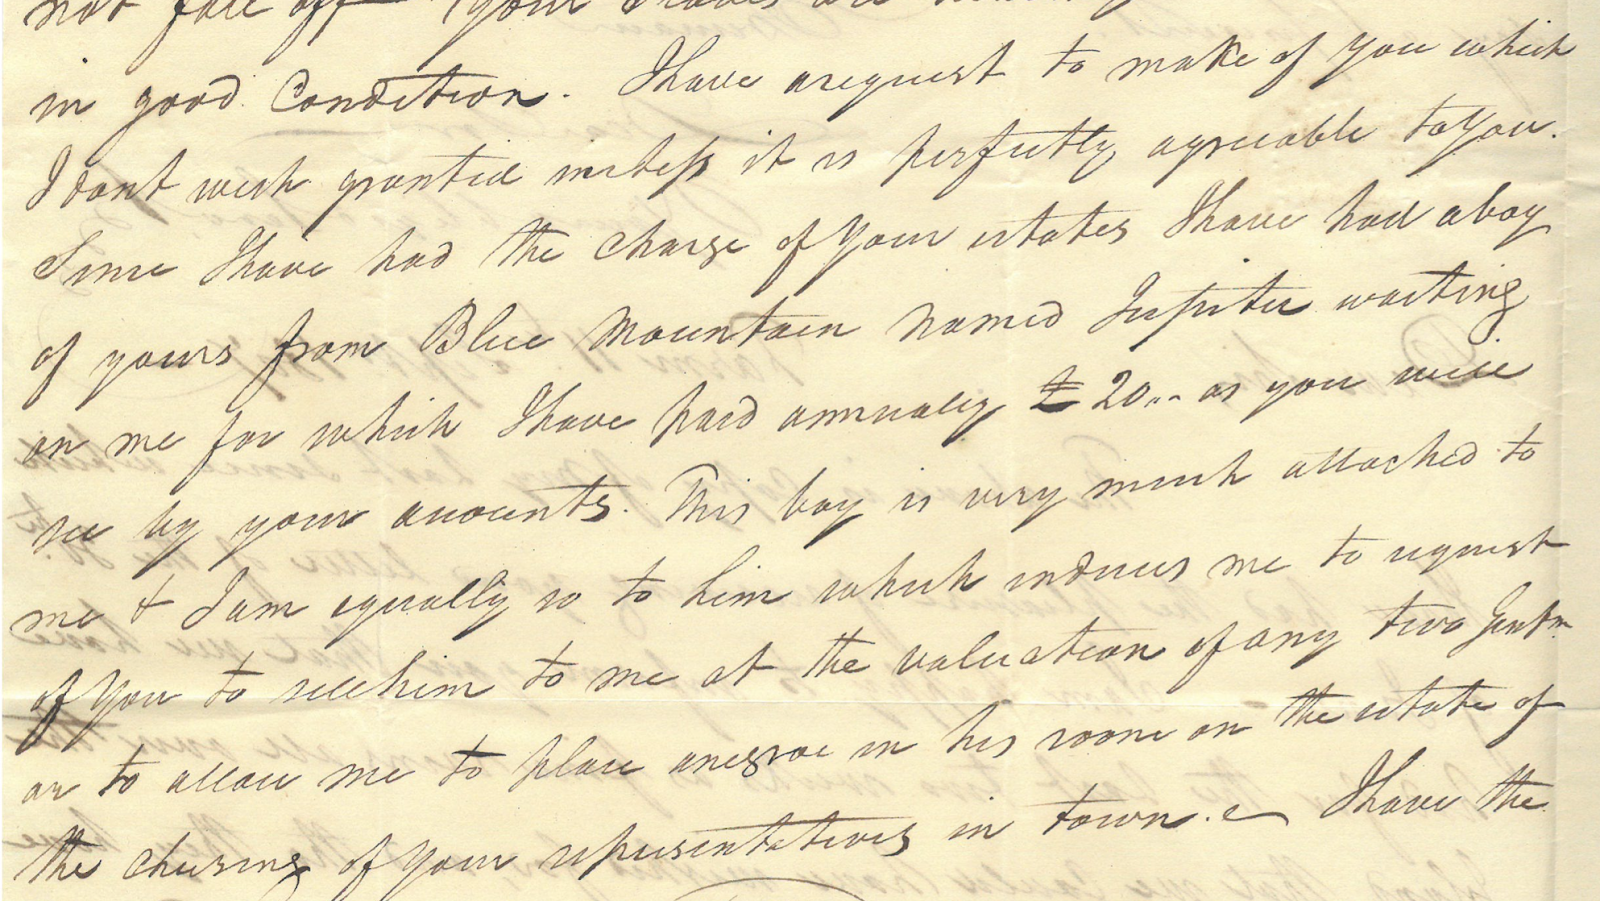 not fall off your
in good Condition. I have a request to make of you which
I dont wish granted unless it is perfectly agreeable to You.
Since I have had the charge of Your estates I have had a boy
of yours from Blue Mountain named Jupiter waiting
on me for which I have paid annually £20.. as you will
see by your accounts. This boy is very much attached to
me & I am equally so to him which induces me to request
of You to sell him to me at the valuation of any two Gentn
or to allow me to place a negroe in his room on the estate of
the chusing of Your representatives in town. I have the